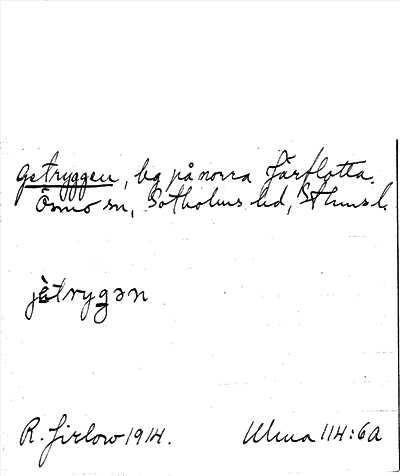 Getryggen, bg på norra Fårflotta.
Ösmo sn, Sotholms hd, Sthms l.
jètrygən
R. Jirlow 1914.
Ulma 114:6a